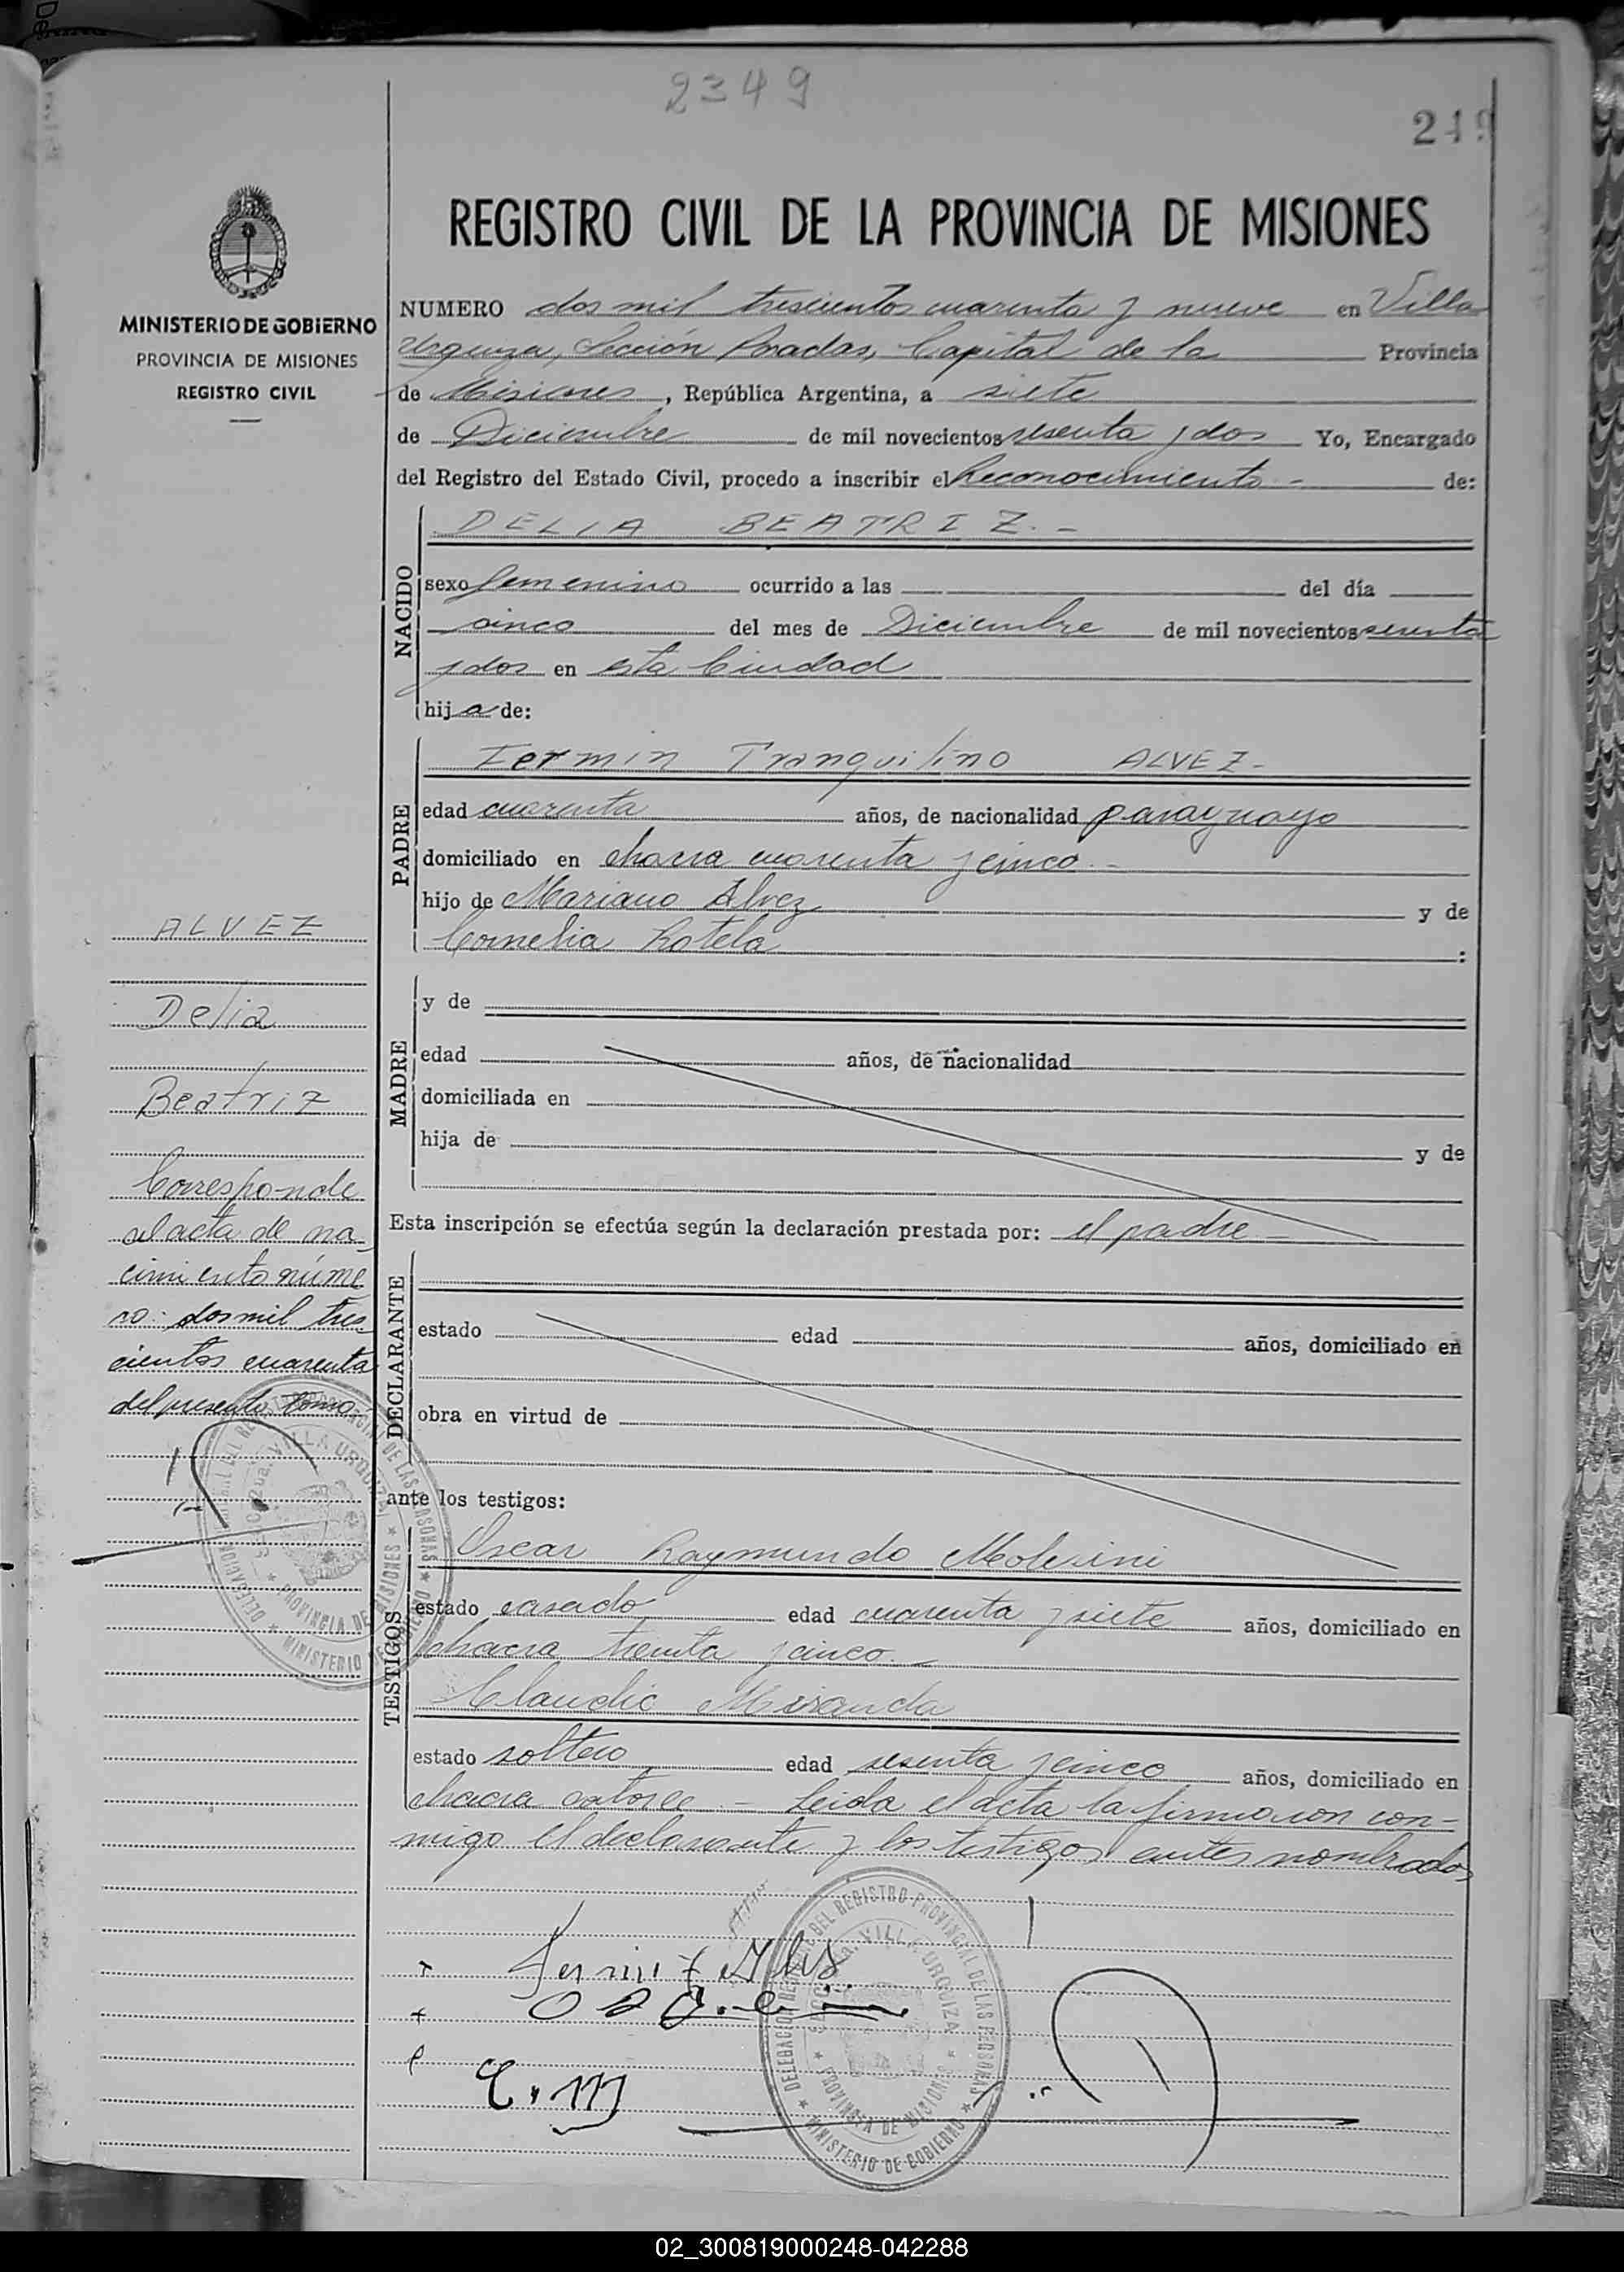 2349
249
REGISTRO CIVIL DE LA PROVINCIA DE MISIONES
MINISTERIO DE GOBIERNO
PROVINCIA DE MISIONES
REGISTRO CIVIL
NUMERO dos mil trescientos cuarenta y nueve en Villa
Urquiza, Sección Posadas, Capital de la Provincia
de Misiones, República Argentina, a siete
de Diciembre de mil novecientos sesenta y dos Yo, Encargado
del Registro del Estado Civil, procedo a inscribir el Reconocimiento - de:
NACIDO
DELIA BEATRIZ.-
sexo femenino ocurrido a las del día
cinco del mes de Diciembre de mil novecientos sesenta
y dos en esta Ciudad
hija de:
PADRE
Fermin Tranquilino ALVEZ-
edad cuarenta años, de nacionalidad paraguayo
domiciliado en chacra cuarenta y cinco.-
hijo de Mariano Alvez y de
Cornelia Rotela :
MADRE
y de
edad años, de nacionalidad
domiciliada en
hija de y de
Esta inscripción se efectúa según la declaración prestada por: el padre -
DECLARANTE
estado edad años, domiciliado en
obra en virtud de
ante los testigos:
TESTIGOS
Oscar Raymundo Molesini
estado casado edad cuarenta y siete años, domiciliado en
chacra treinta y cinco.-
Claudio Miranda
estado soltero edad sesenta y cinco años, domiciliado en
chacra catorce.- Leida el acta la firmaron con-
migo el declarante y los testigos antes nombrados
ALVEZ
Delia
Beatriz
Corresponde
al acta de na-
cimiento núme
ro: dos mil tres
cientos cuarenta
del presente tomo.
DELEGACION DEL REGISTRO PROVINCIAL DE LAS PERSONAS
VILLA URQUIZA
PROVINCIA DE MISIONES
MINISTERIO DE GOBIERNO
Fermin T Alvez
C. M
DELEGACION DEL REGISTRO PROVINCIAL DE LAS PERSONAS
VILLA URQUIZA
PROVINCIA DE MISIONES
MINISTERIO DE GOBIERNO
02_300819000248-042288